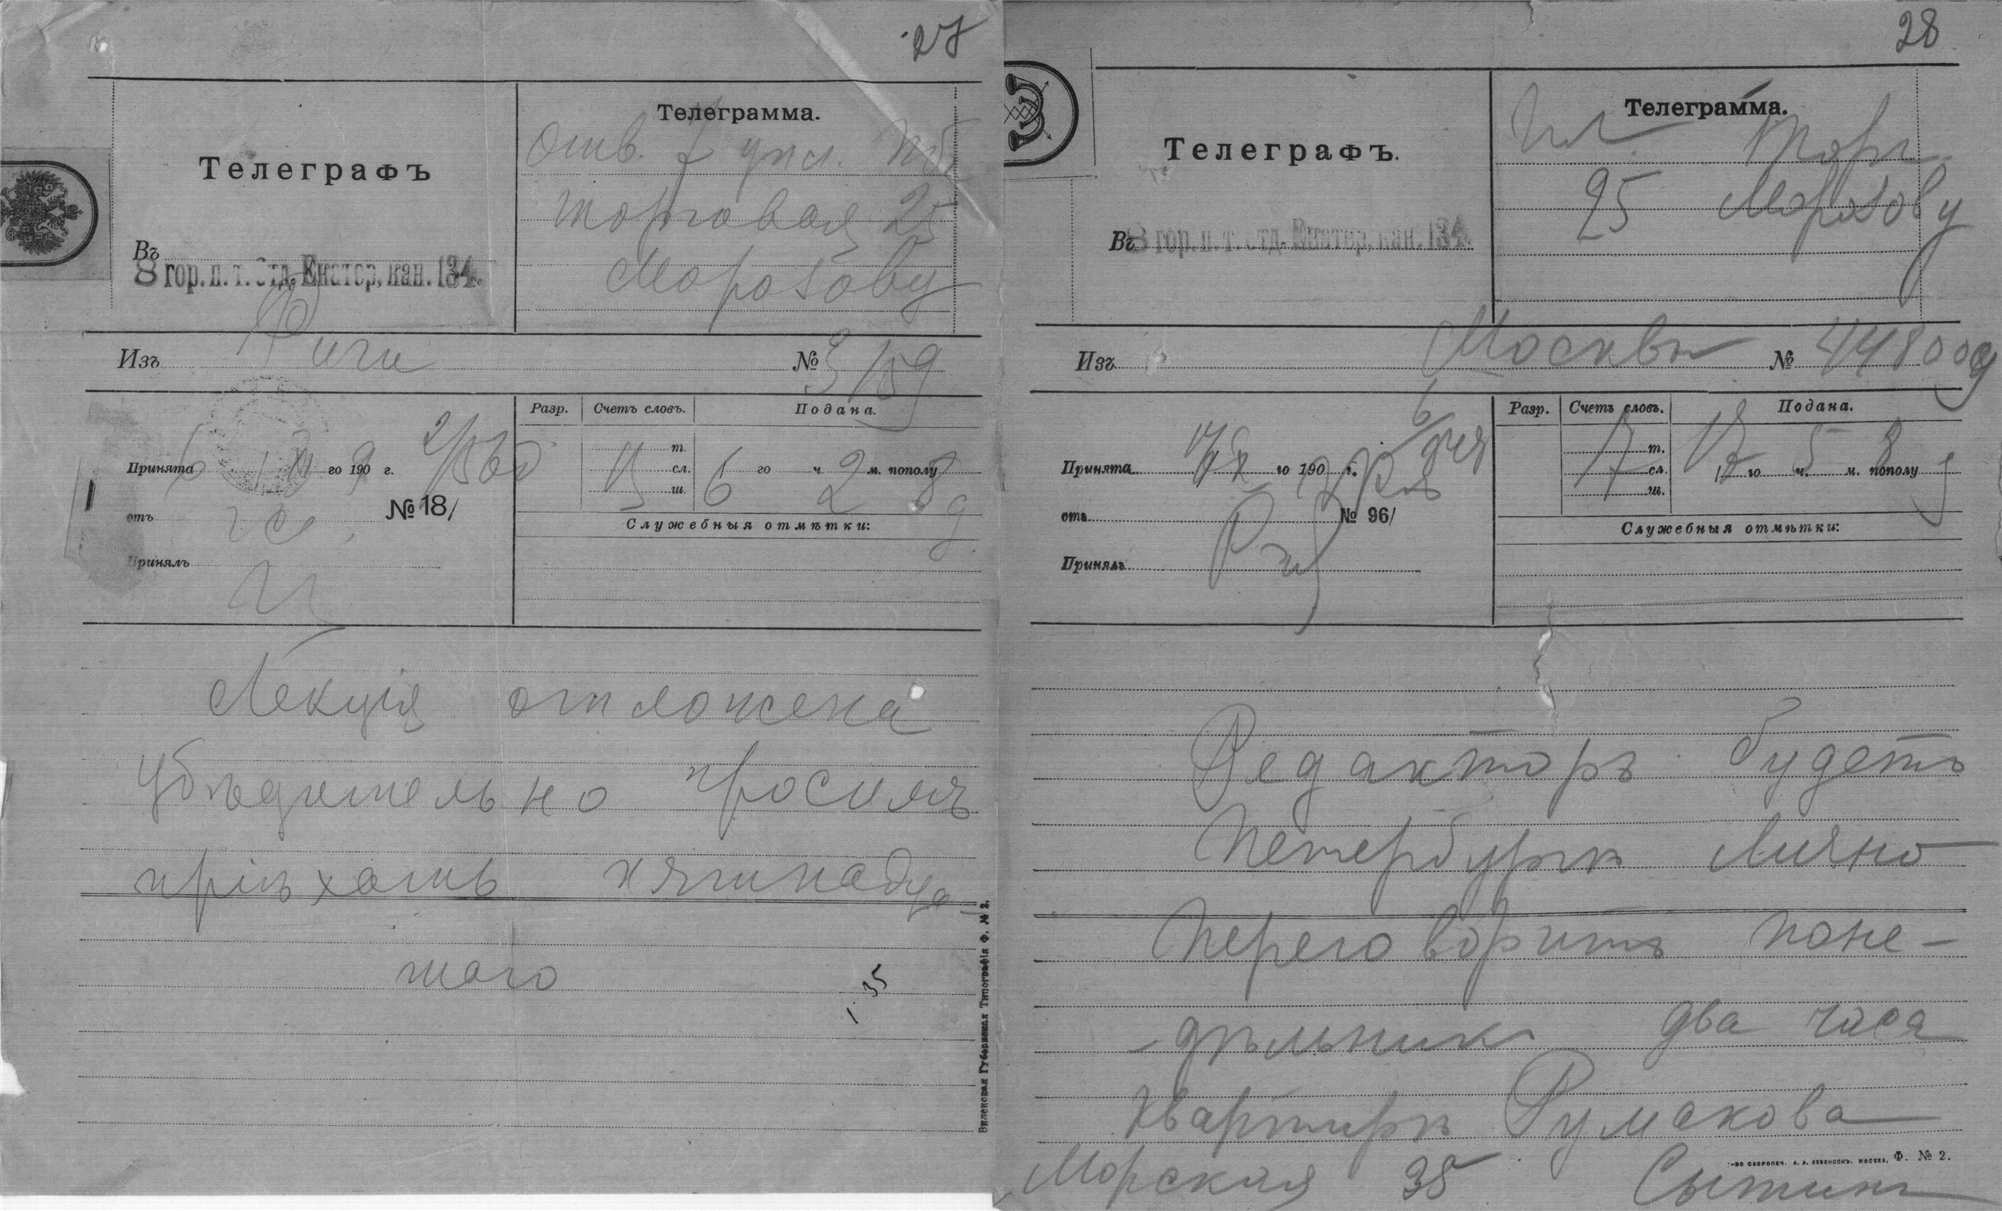 27
Телеграфъ
Въ
8 гор. п. т. отд. Екатер. кан. 134.
Телеграмма.
Отв. 7 упл. Пб
Торговая 25
Морозову
Изъ Риги № 3/159
Принята го 190 г.
№ 18/
отъ
Принялъ
Разр. Счетъ словъ. Подана.
т.
15 сл. 6 го ч. 2 м. пополу
ш.
Служебныя отмѣтки:
Лекція отложена
убѣдительно просимъ
пріѣхать пятнадца
таго
Виленская Губернская Типографія Ф. № 2.
28
Телеграфъ.
Въ 8 гор. п. т. отд. Екатер. кан. 134.
Телеграмма.
Торг
25 Морозову
Изъ Москвы №
Принята го 190 г.
отъ № 96/
Принялъ
Разр. Счетъ словъ. Подана.
т.
17 сл. го 5 ч. 8 м. пополу
ш.
Служебныя отмѣтки:
Редакторъ будетъ
Петербургѣ Лично
Переговоритъ поне-
-дѣльникъ два часа
Квартирѣ Румакова
Морская 35 Сытинъ
Т-во скоропеч. А. А. Левенсонъ. Москва. Ф. № 2.